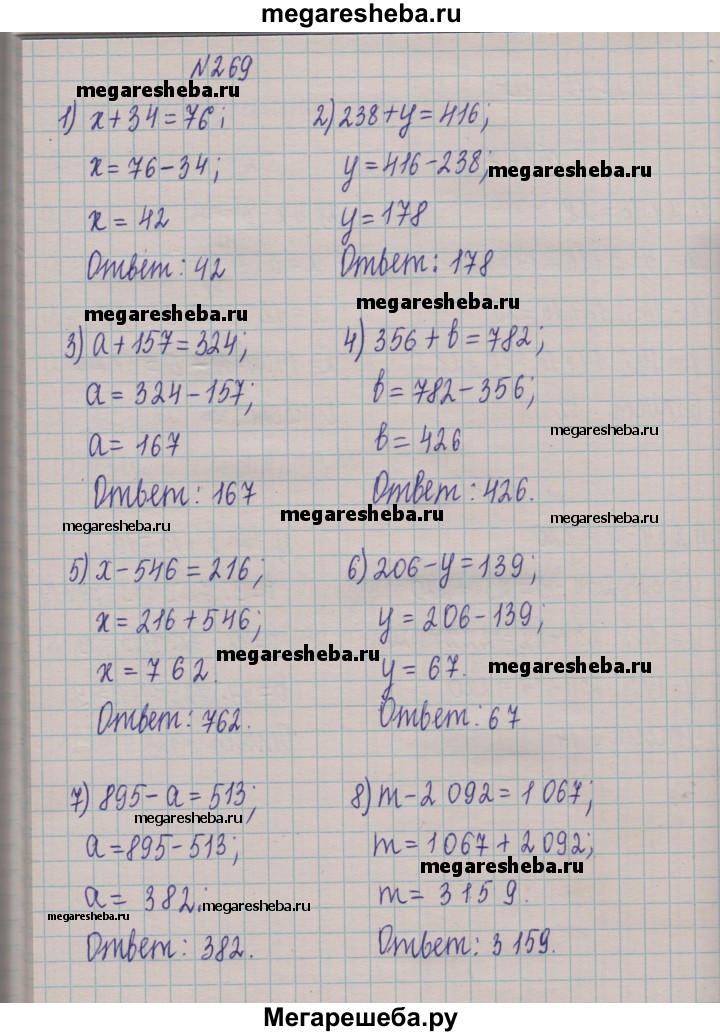 megaresheba.ru
№269
megaresheba.ru
1) x+34=76;
x=76-34;
x=42
Ответ: 42
2) 238+y=416;
y=416-238;
megaresheba.ru
y=178
Ответ: 178
megaresheba.ru
megaresheba.ru
3) a+157=324;
a=324-157;
a=167
Ответ: 167
megaresheba.ru
4) 356+b=782;
b=782-356;
megaresheba.ru
b=426
Ответ: 426.
megaresheba.ru
megaresheba.ru
5) x-546=216;
x=216+546;
x=762.
megaresheba.ru
Ответ: 762.
6) 206-y=139;
y=206-139;
y=67.
megaresheba.ru
Ответ: 67
7) 895-a=513;
megaresheba.ru
a=895-513;
a=382.
megaresheba.ru
megaresheba.ru
Ответ: 382.
8) m-2 092=1 067;
m=1067+2092;
megaresheba.ru
m=3159.
Ответ: 3159.
Мегарешеба.ру